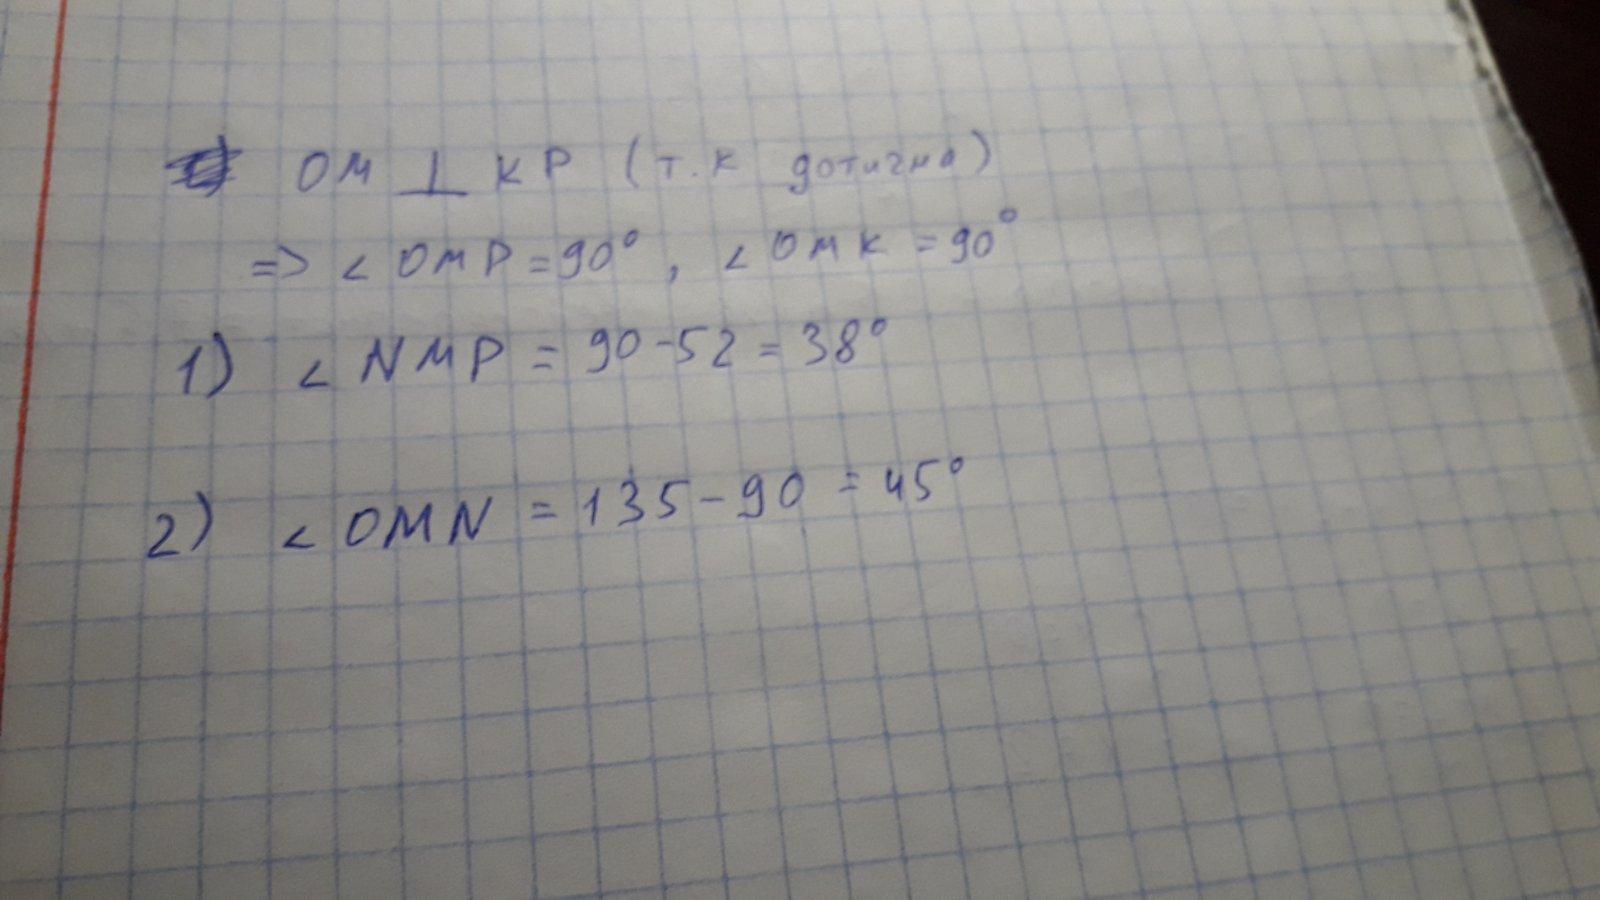 OM ⊥ KP (т.к дотична)
=> < OMP = 90°, < OMK = 90°
1) < NMP = 90-52 = 38°
2) < OMN = 135-90 = 45°